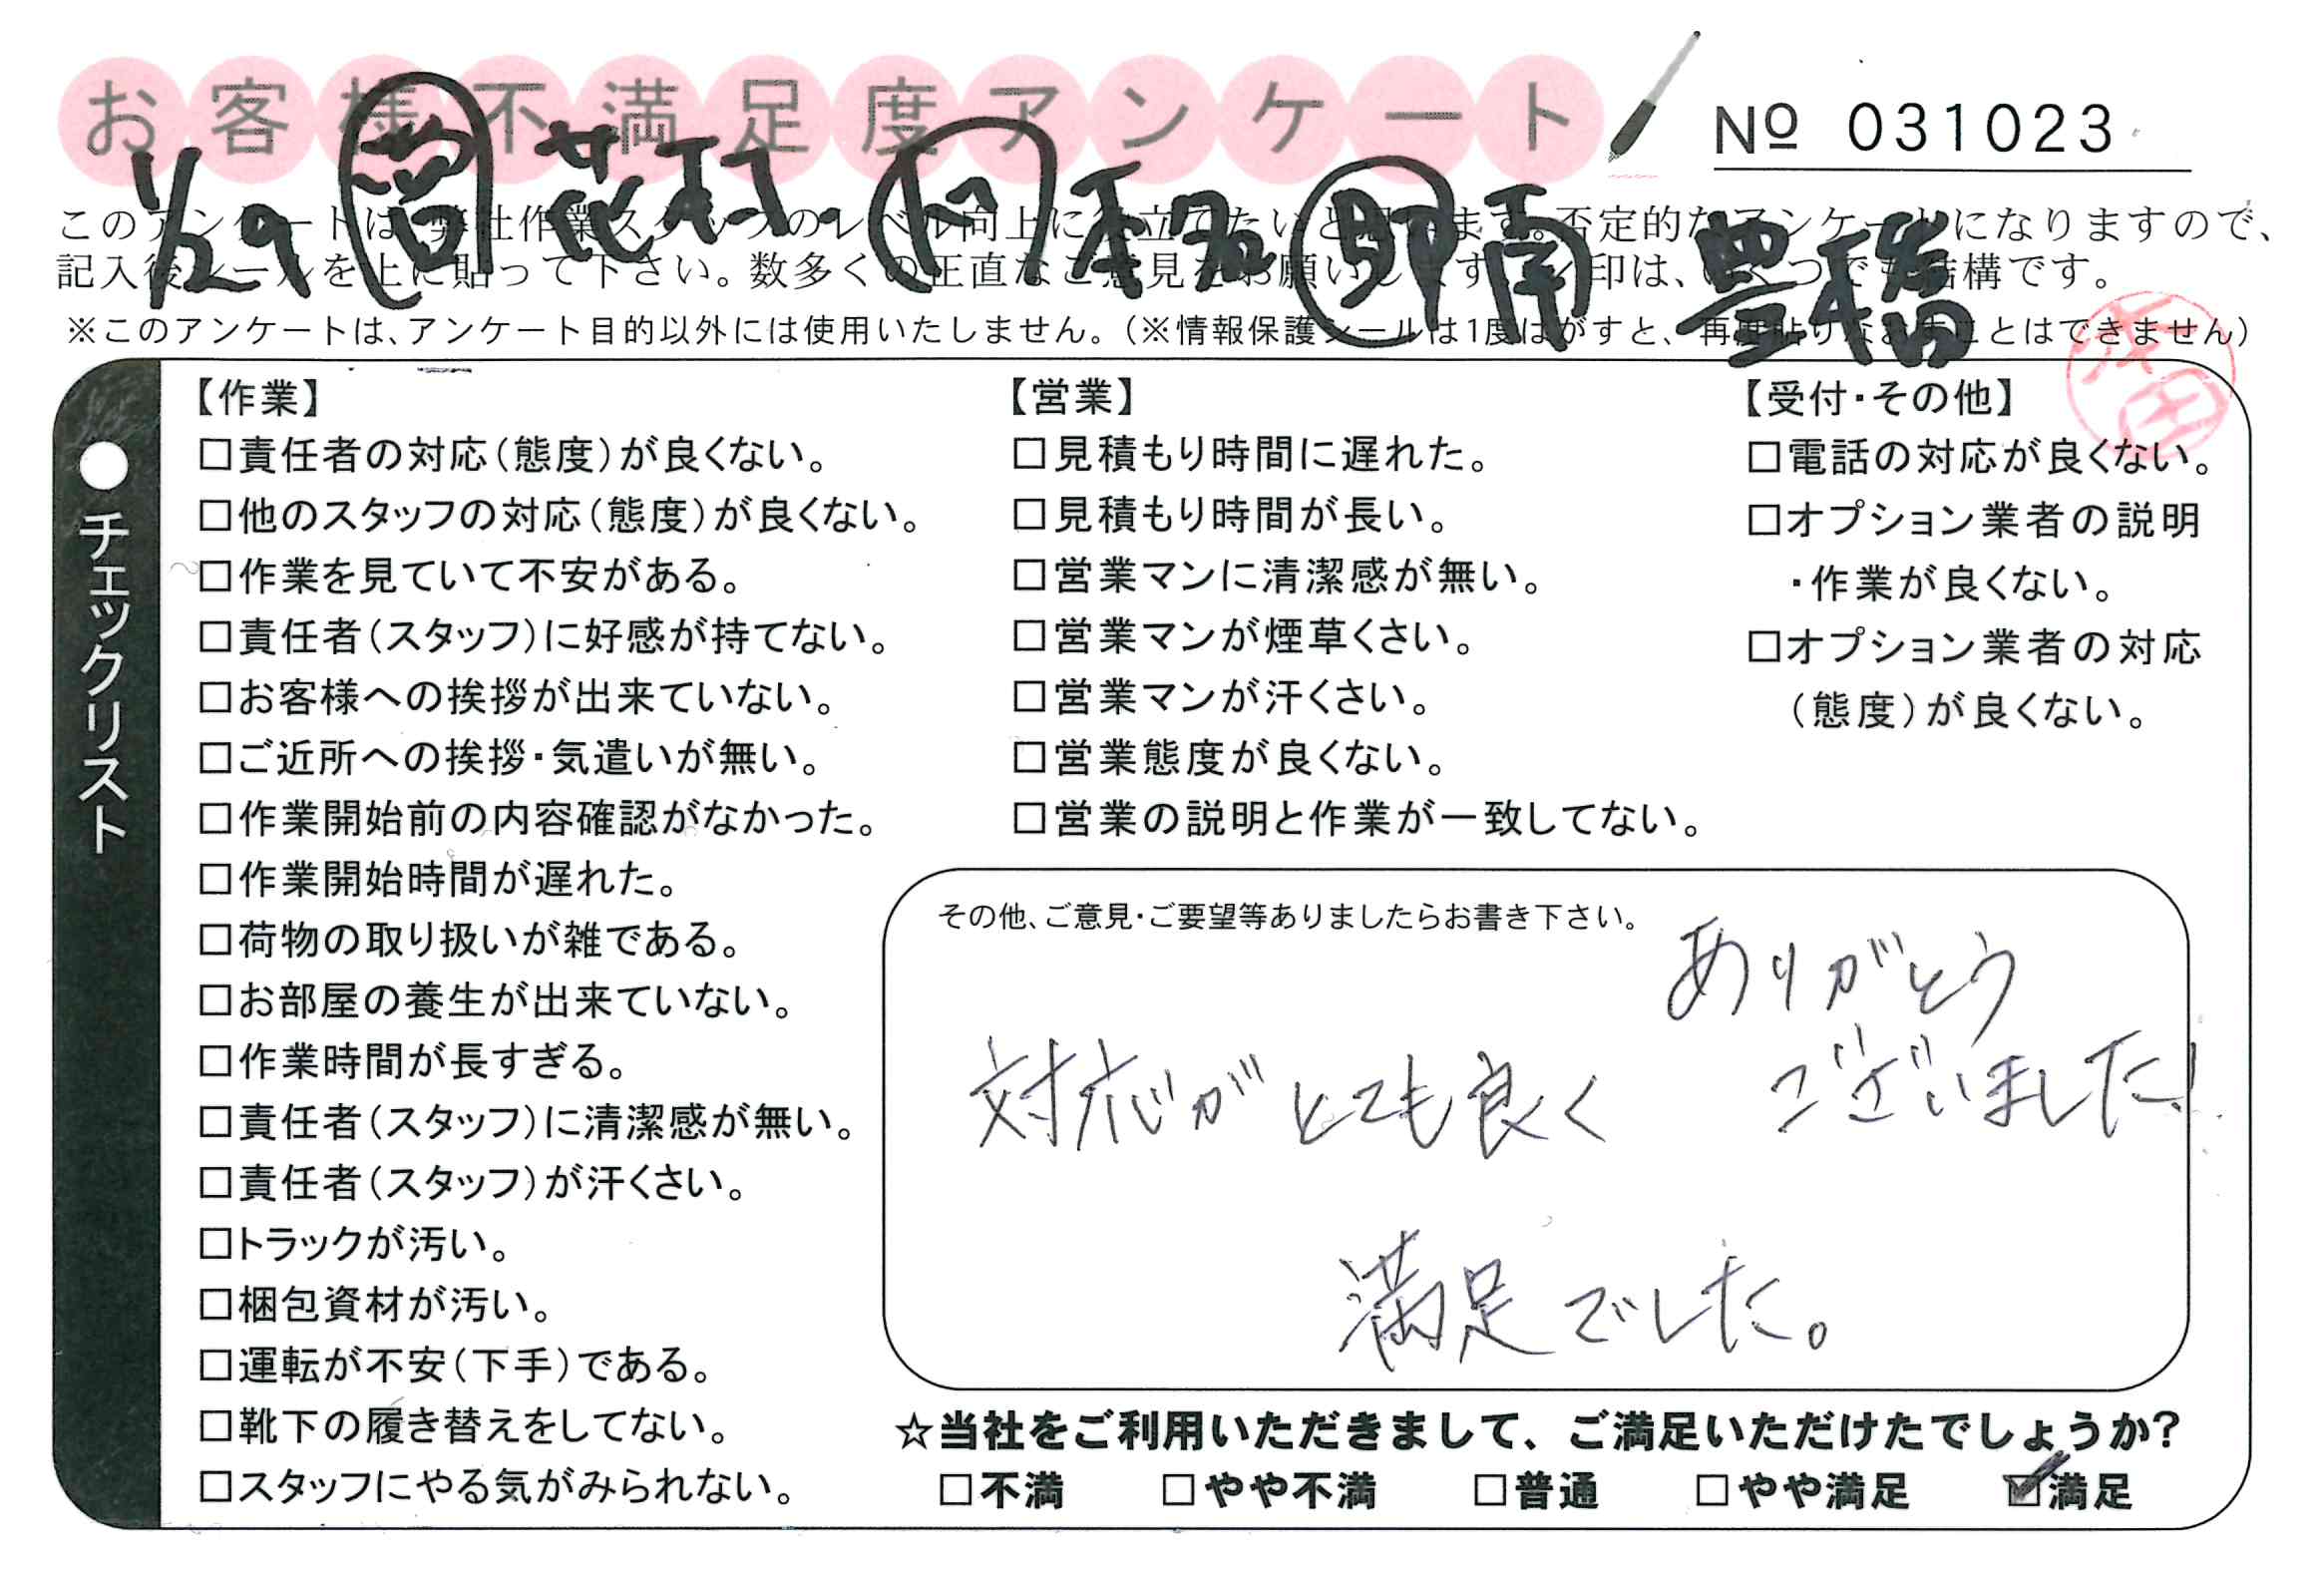 お客様不満足度アンケート
№ 031023
1/29 営 花村 本多 助 南 豊福
このアンケートは、弊社作業スタッフのレベル向上に役立てたいと思います。否定的なアンケートになりますので、
記入後シールを上に貼って下さい。数多くの正直なご意見をお願いします。レ印は、いくつでも結構です。
※このアンケートは、アンケート目的以外には使用いたしません。（※情報保護シールは1度はがすと、再度貼りなおすことはできません）
●チェックリスト
【作業】
□責任者の対応（態度）が良くない。
□他のスタッフの対応（態度）が良くない。
□作業を見ていて不安がある。
□責任者（スタッフ）に好感が持てない。
□お客様への挨拶が出来ていない。
□ご近所への挨拶・気遣いが無い。
□作業開始前の内容確認がなかった。
□作業開始時間が遅れた。
□荷物の取り扱いが雑である。
□お部屋の養生が出来ていない。
□作業時間が長すぎる。
□責任者（スタッフ）に清潔感が無い。
□責任者（スタッフ）が汗くさい。
□トラックが汚い。
□梱包資材が汚い。
□運転が不安（下手）である。
□靴下の履き替えをしてない。
□スタッフにやる気がみられない。
【営業】
□見積もり時間に遅れた。
□見積もり時間が長い。
□営業マンに清潔感が無い。
□営業マンが煙草くさい。
□営業マンが汗くさい。
□営業態度が良くない。
□営業の説明と作業が一致してない。
【受付・その他】
□電話の対応が良くない。
□オプション業者の説明
・作業が良くない。
□オプション業者の対応
（態度）が良くない。
その他、ご意見・ご要望等ありましたらお書き下さい。
対応がとても良く
満足でした。
ありがとう
ございました!
☆当社をご利用いただきまして、ご満足いただけたでしょうか?
□不満 □やや不満 □普通 □やや満足 ☑満足